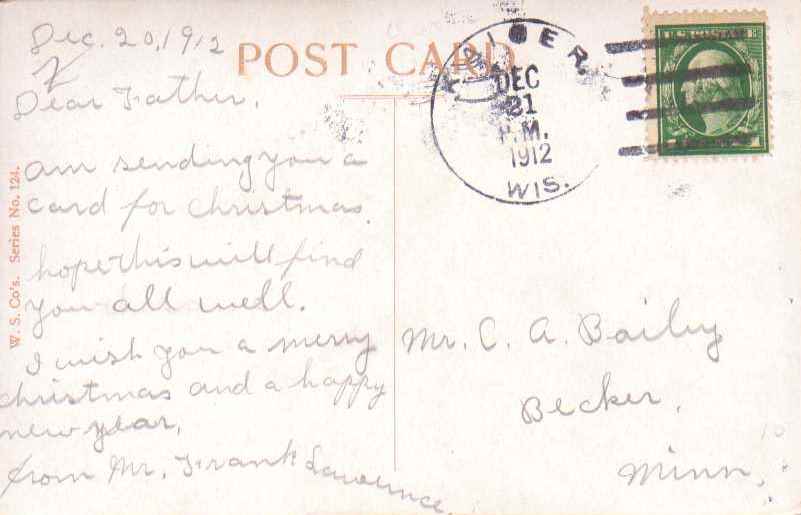 Dec. 20, 1912
POST CARD
Dear Father,
am sending you a
card for christmas.
hope this will find
you all well.
I wish you a merry
christmas and a happy
new year,
from Mr. Frank Lawrence
W. S. Co's. Series No. 124.
DEC
21
P.M.
1912
WIS.
U.S. POSTAGE
Mr. C. A. Bailey
Becker,
Minn,